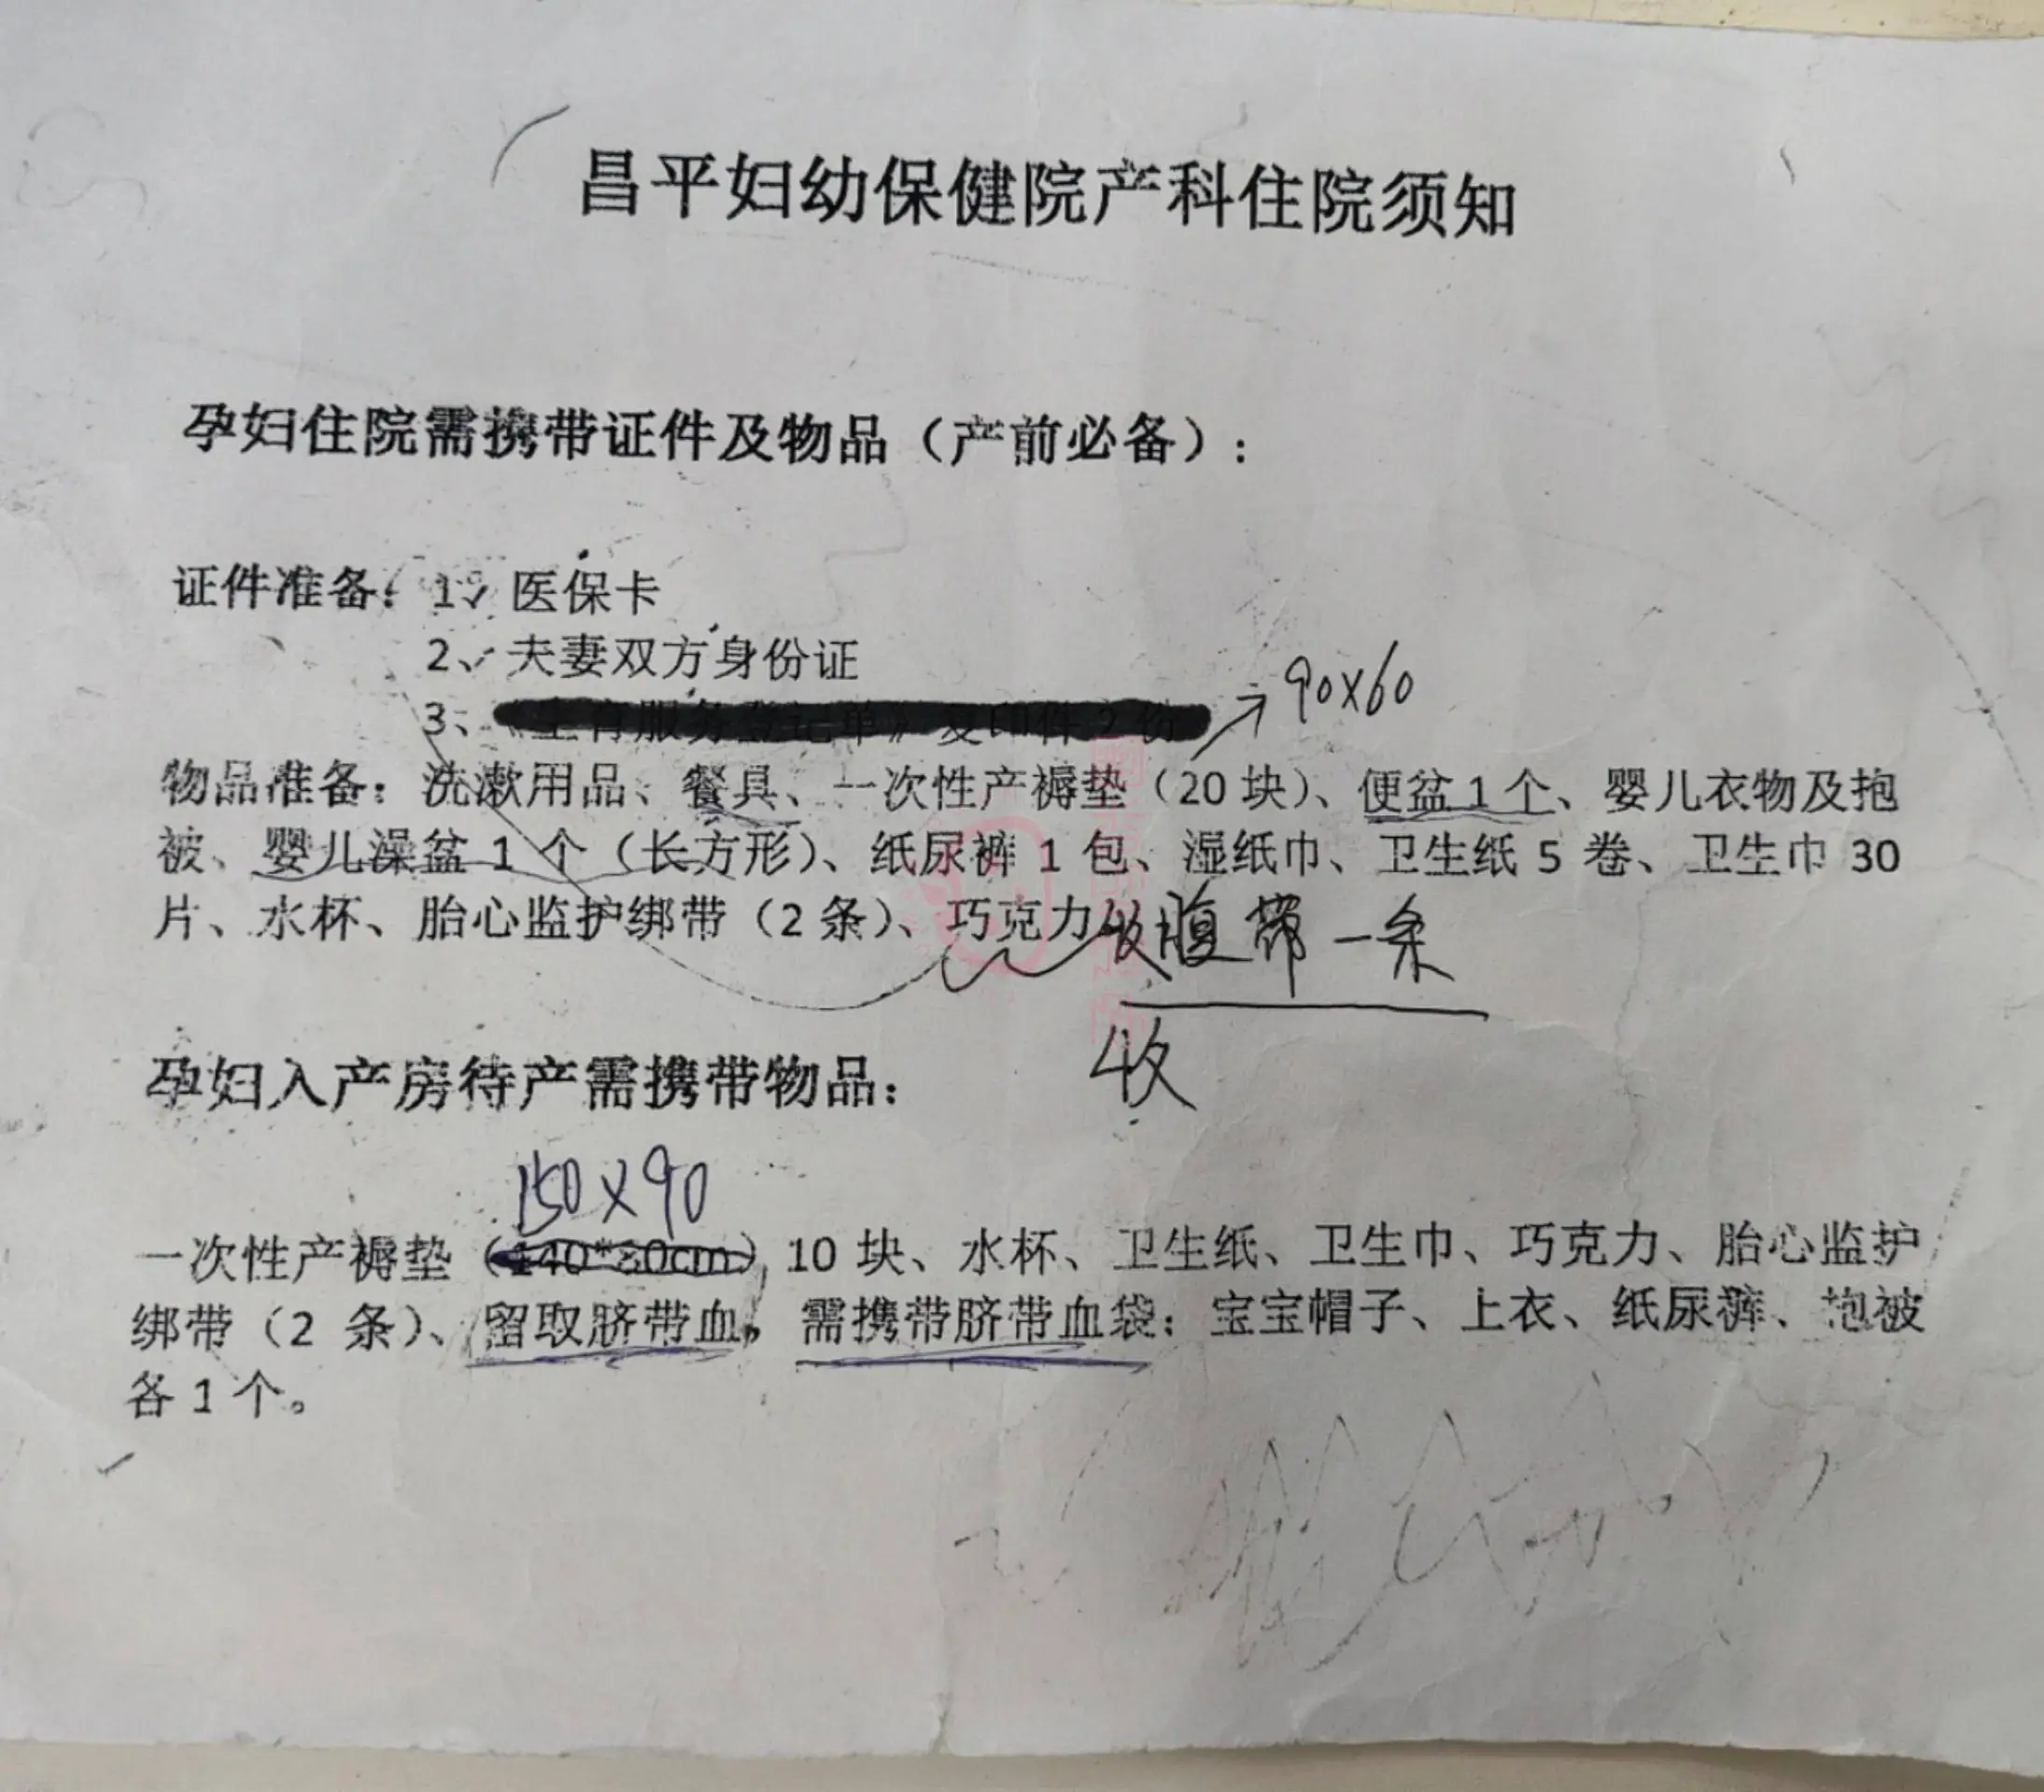 昌平妇幼保健院产科住院须知
孕妇住院需携带证件及物品（产前必备）：
证件准备：1、医保卡
2、夫妻双方身份证
3、《生育服务登记单》复印件2份
90×60
物品准备：洗漱用品、餐具、一次性产褥垫（20块）、便盆1个、婴儿衣物及抱
被、婴儿澡盆1个（长方形）、纸尿裤1包、湿纸巾、卫生纸5卷、卫生巾30
片、水杯、胎心监护绑带（2条）、巧克力 收腹带一条
收
孕妇入产房待产需携带物品：
150×90
一次性产褥垫（140*80cm）10块、水杯、卫生纸、卫生巾、巧克力、胎心监护
绑带（2条）、留取脐带血，需携带脐带血袋；宝宝帽子、上衣、纸尿裤、抱被
各1个。